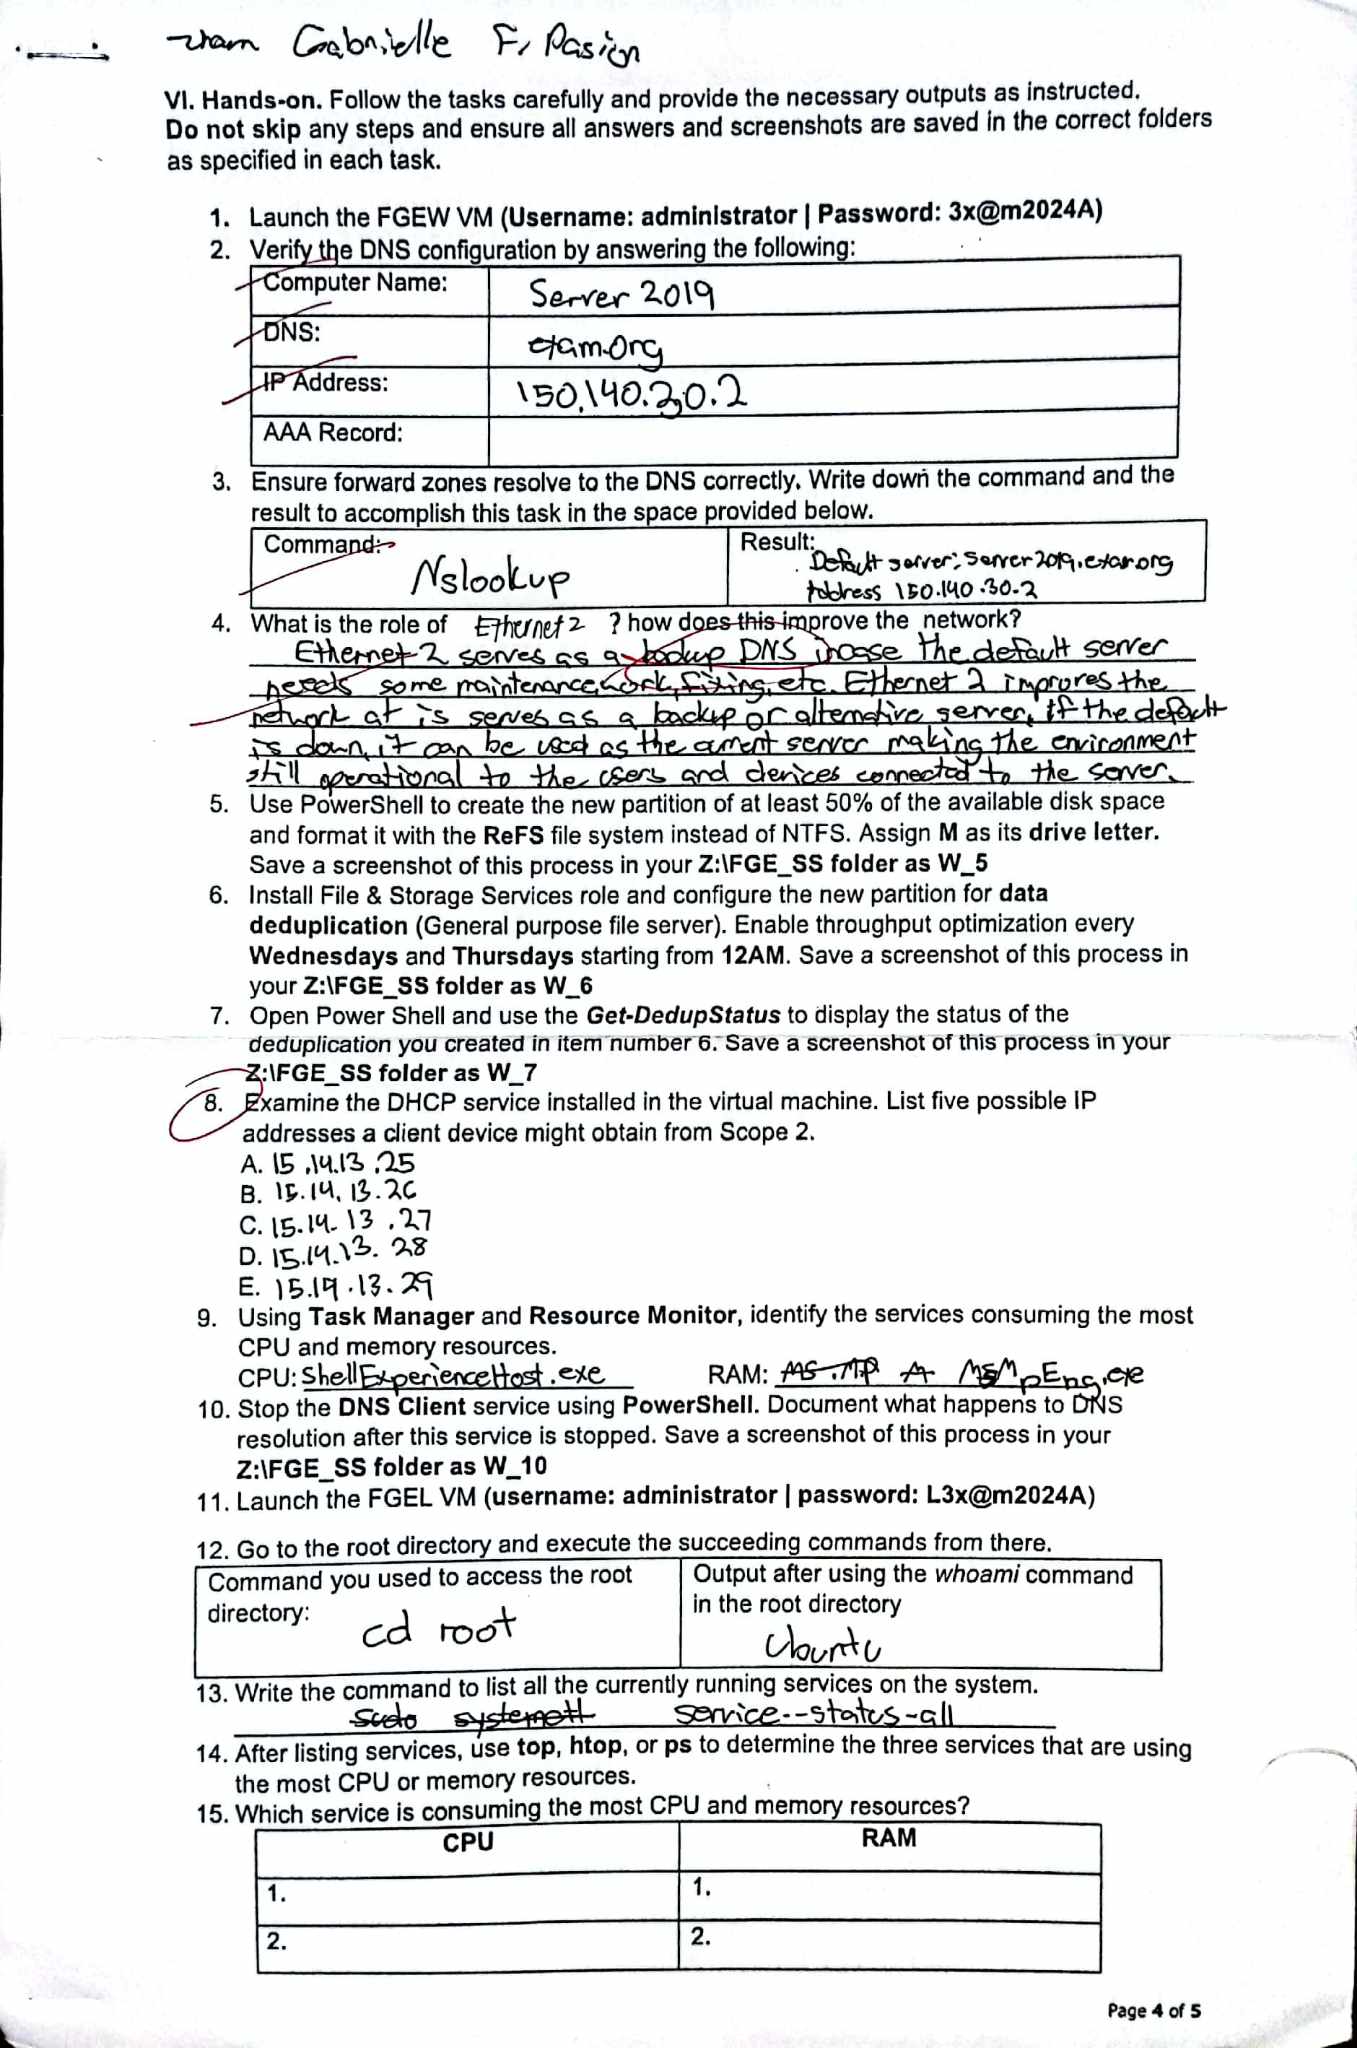 Gabrielle F. Pasion
VI. Hands-on. Follow the tasks carefully and provide the necessary outputs as instructed.
Do not skip any steps and ensure all answers and screenshots are saved in the correct folders
as specified in each task.
1. Launch the FGEW VM (Username: administrator | Password: 3x@m2024A)
2. Verify the DNS configuration by answering the following:
Computer Name: Server 2019
DNS: exam.org
IP Address: 150.140.30.2
AAA Record:
3. Ensure forward zones resolve to the DNS correctly. Write down the command and the
result to accomplish this task in the space provided below.
Command: Nslookup
Result: Default server: Server2019.exam.org
Address 150.140.30.2
4. What is the role of Ethernet 2 ? how does this improve the network?
Ethernet 2 serves as a backup DNS incase the default server
needs some maintenance, work, fixing, etc. Ethernet 2 improves the
network at is serves as a backup or alternative server, if the default
is down, it can be used as the current server making the environment
still operational to the users and devices connected to the server.
5. Use PowerShell to create the new partition of at least 50% of the available disk space
and format it with the ReFS file system instead of NTFS. Assign M as its drive letter.
Save a screenshot of this process in your Z:\FGE_SS folder as W_5
6. Install File & Storage Services role and configure the new partition for data
deduplication (General purpose file server). Enable throughput optimization every
Wednesdays and Thursdays starting from 12AM. Save a screenshot of this process in
your Z:\FGE_SS folder as W_6
7. Open Power Shell and use the Get-DedupStatus to display the status of the
deduplication you created in item number 6. Save a screenshot of this process in your
Z:\FGE_SS folder as W_7
8. Examine the DHCP service installed in the virtual machine. List five possible IP
addresses a client device might obtain from Scope 2.
A. 15.14.13.25
B. 15.14.13.26
C. 15.14.13.27
D. 15.14.13.28
E. 15.14.13.29
9. Using Task Manager and Resource Monitor, identify the services consuming the most
CPU and memory resources.
CPU: ShellExperienceHost.exe RAM: MsMpEng.exe
10. Stop the DNS Client service using PowerShell. Document what happens to DNS
resolution after this service is stopped. Save a screenshot of this process in your
Z:\FGE_SS folder as W_10
11. Launch the FGEL VM (username: administrator | password: L3x@m2024A)
12. Go to the root directory and execute the succeeding commands from there.
Command you used to access the root
directory: cd root
Output after using the whoami command
in the root directory
Ubuntu
13. Write the command to list all the currently running services on the system.
sudo systemctl service--status-all
14. After listing services, use top, htop, or ps to determine the three services that are using
the most CPU or memory resources.
15. Which service is consuming the most CPU and memory resources?
CPU RAM
1. 1.
2. 2.
Page 4 of 5